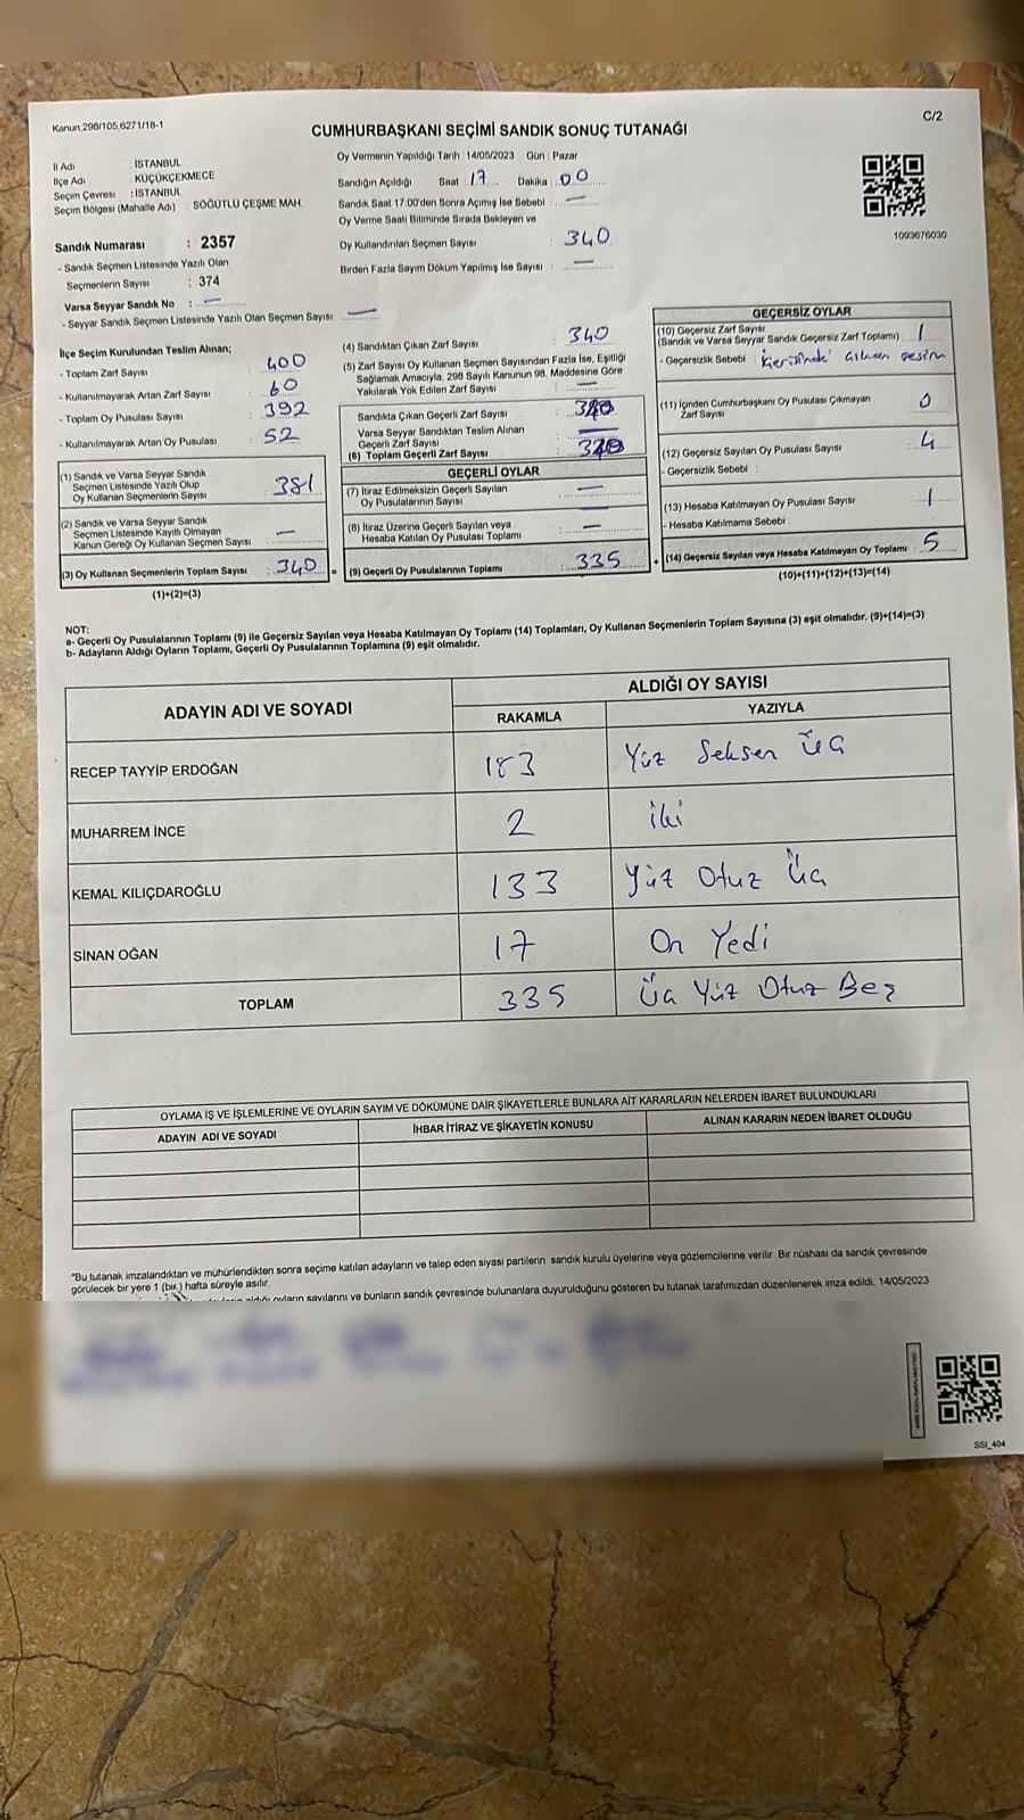 Kanun,298/105,6271/18-1
C/2
CUMHURBAŞKANI SEÇİMİ SANDIK SONUÇ TUTANAĞI
İl Adı : İSTANBUL
İlçe Adı : KÜÇÜKÇEKMECE
Seçim Çevresi : İSTANBUL
Seçim Bölgesi (Mahalle Adı) SÖĞÜTLÜ ÇEŞME MAH.
Sandık Numarası : 2357
- Sandık Seçmen Listesinde Yazılı Olan
Seçmenlerin Sayısı : 374
Varsa Seyyar Sandık No : —
- Seyyar Sandık Seçmen Listesinde Yazılı Olan Seçmen Sayısı: —
Oy Vermenin Yapıldığı Tarih : 14/05/2023 Gün : Pazar
Sandığın Açıldığı Saat 17 Dakika 00
Sandık Saat 17:00'den Sonra Açımış İse Sebebi : —
Oy Verme Saati Bitiminde Sırada Bekleyen ve
Oy Kullandırılan Seçmen Sayısı : 340
Birden Fazla Sayım Döküm Yapılmış İse Sayısı : —
1093676030
İlçe Seçim Kurulundan Teslim Alınan;
- Toplam Zarf Sayısı : 400
- Kullanılmayarak Artan Zarf Sayısı : 60
- Toplam Oy Pusulası Sayısı : 392
- Kullanılmayarak Artan Oy Pusulası : 52
(1) Sandık ve Varsa Seyyar Sandık
Seçmen Listesinde Yazılı Olup
Oy Kullanan Seçmenlerin Sayısı 381
(2) Sandık ve Varsa Seyyar Sandık
Seçmen Listesinde Kayıtlı Olmayan
Kanun Gereği Oy Kullanan Seçmen Sayısı —
(3) Oy Kullanan Seçmenlerin Toplam Sayısı : 340
(1)+(2)=(3)
(4) Sandıktan Çıkan Zarf Sayısı 340
(5) Zarf Sayısı Oy Kullanan Seçmen Sayısından Fazla İse, Eşitliği
Sağlamak Amacıyla, 298 Sayılı Kanunun 98. Maddesine Göre
Yakılarak Yok Edilen Zarf Sayısı —
Sandıkta Çıkan Geçerli Zarf Sayısı
Varsa Seyyar Sandıktan Teslim Alınan
Geçerli Zarf Sayısı —
(6) Toplam Geçerli Zarf Sayısı
GEÇERLİ OYLAR
(7) İtiraz Edilmeksizin Geçerli Sayılan
Oy Pusulalarının Sayısı —
(8) İtiraz Üzerine Geçerli Sayılan veya
Hesaba Katılan Oy Pusulası Toplamı —
= (9) Geçerli Oy Pusulalarının Toplamı : 335
GEÇERSİZ OYLAR
(10) Geçersiz Zarf Sayısı
(Sandık ve Varsa Seyyar Sandık Geçersiz Zarf Toplamı) 1
- Geçersizlik Sebebi
(11) İçinden Cumhurbaşkanı Oy Pusulası Çıkmayan
Zarf Sayısı 0
(12) Geçersiz Sayılan Oy Pusulası Sayısı 4
- Geçersizlik Sebebi :
(13) Hesaba Katılmayan Oy Pusulası Sayısı 1
- Hesaba Katılmama Sebebi :
+ (14) Geçersiz Sayılan veya Hesaba Katılmayan Oy Toplamı 5
(10)+(11)+(12)+(13)=(14)
NOT:
a- Geçerli Oy Pusulalarının Toplamı (9) ile Geçersiz Sayılan veya Hesaba Katılmayan Oy Toplamı (14) Toplamları, Oy Kullanan Seçmenlerin Toplam Sayısına (3) eşit olmalıdır. (9)+(14)=(3)
b- Adayların Aldığı Oyların Toplamı, Geçerli Oy Pusulalarının Toplamına (9) eşit olmalıdır.
ADAYIN ADI VE SOYADI
ALDIĞI OY SAYISI
RAKAMLA YAZIYLA
RECEP TAYYİP ERDOĞAN 183 Yüz Seksen Üç
MUHARREM İNCE 2 iki
KEMAL KILIÇDAROĞLU 133 Yüz Otuz Üç
SİNAN OĞAN 17 On Yedi
TOPLAM 335 Üç Yüz Otuz Beş
OYLAMA İŞ VE İŞLEMLERİNE VE OYLARIN SAYIM VE DÖKÜMÜNE DAİR ŞİKAYETLERLE BUNLARA AİT KARARLARIN NELERDEN İBARET BULUNDUKLARI
ADAYIN ADI VE SOYADI İHBAR İTİRAZ VE ŞİKAYETİN KONUSU ALINAN KARARIN NEDEN İBARET OLDUĞU
"Bu tutanak imzalandıktan ve mühürlendikten sonra seçime katılan adayların ve talep eden siyasi partilerin sandık kurulu üyelerine veya gözlemcilerine verilir. Bir nüshası da sandık çevresinde
görülecek bir yere 1 (bir) hafta süreyle asılır.
aldığı oyların sayılarını ve bunların sandık çevresinde bulunanlara duyurulduğunu gösteren bu tutanak tarafımızdan düzenlenerek imza edildi. 14/05/2023
SSI_404